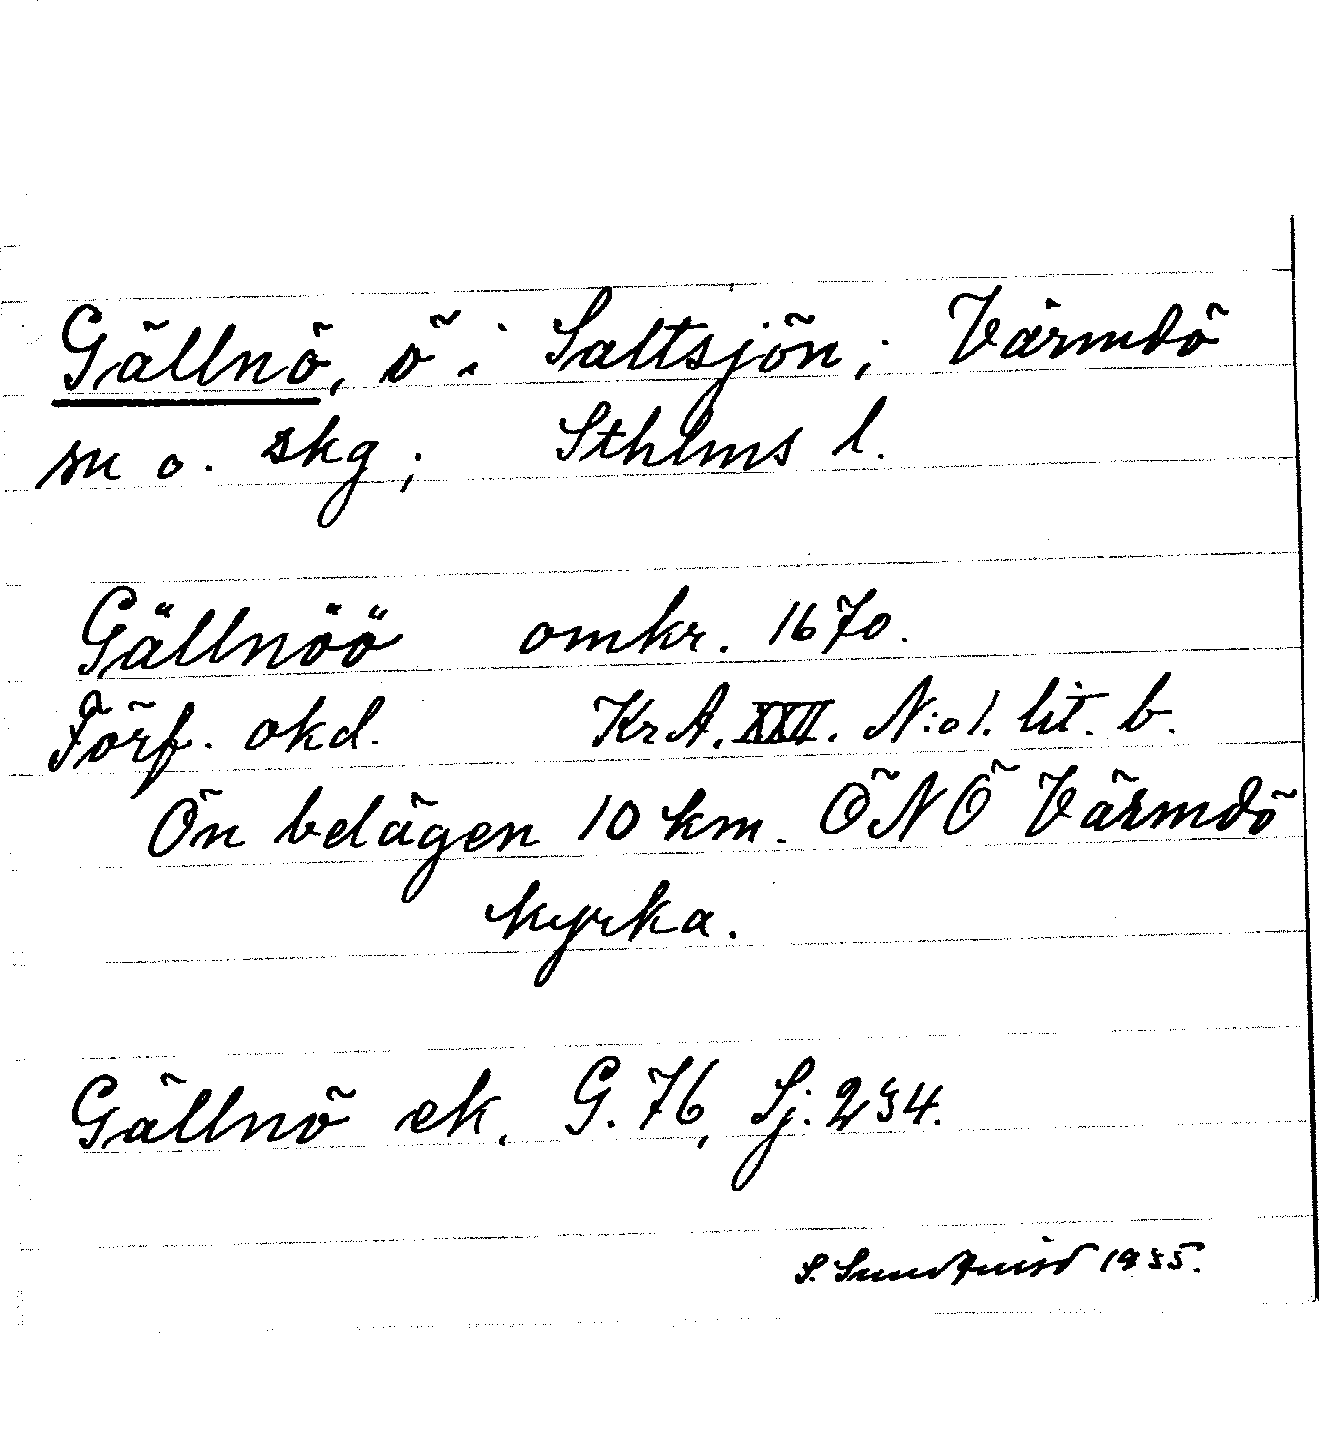 Gällnö, ö i Saltsjön; Värmdö
sn o. skg; Sthlms l.
Gällnöö omkr. 1670.
Förf. okd. KrA. XXII. N:o 1. lit. b.
Ön belägen 10 km. ÖNÖ Värmdö
kyrka.
Gällnö ek. G. 76, Sj. 234.
S. Sundquist 1935.